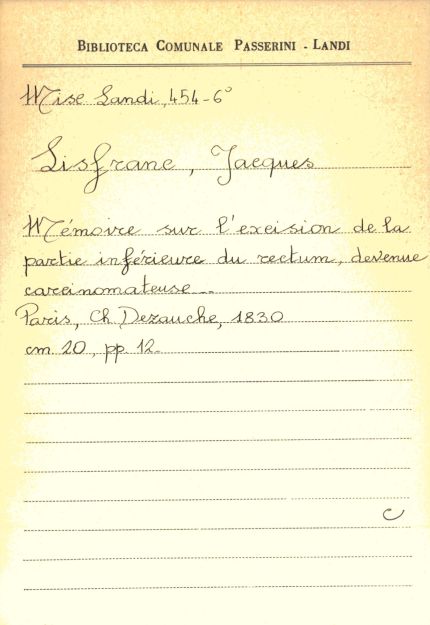 BIBLIOTECA COMUNALE PASSERINI - LANDI
Misc Landi, 454-6°
Lisfranc, Jacques
Mémoire sur l'excision de la
partie inférieure du rectum, devenue
carcinomateuse...
Paris, Ch Dezauche, 1830
cm. 20, pp. 12.
C